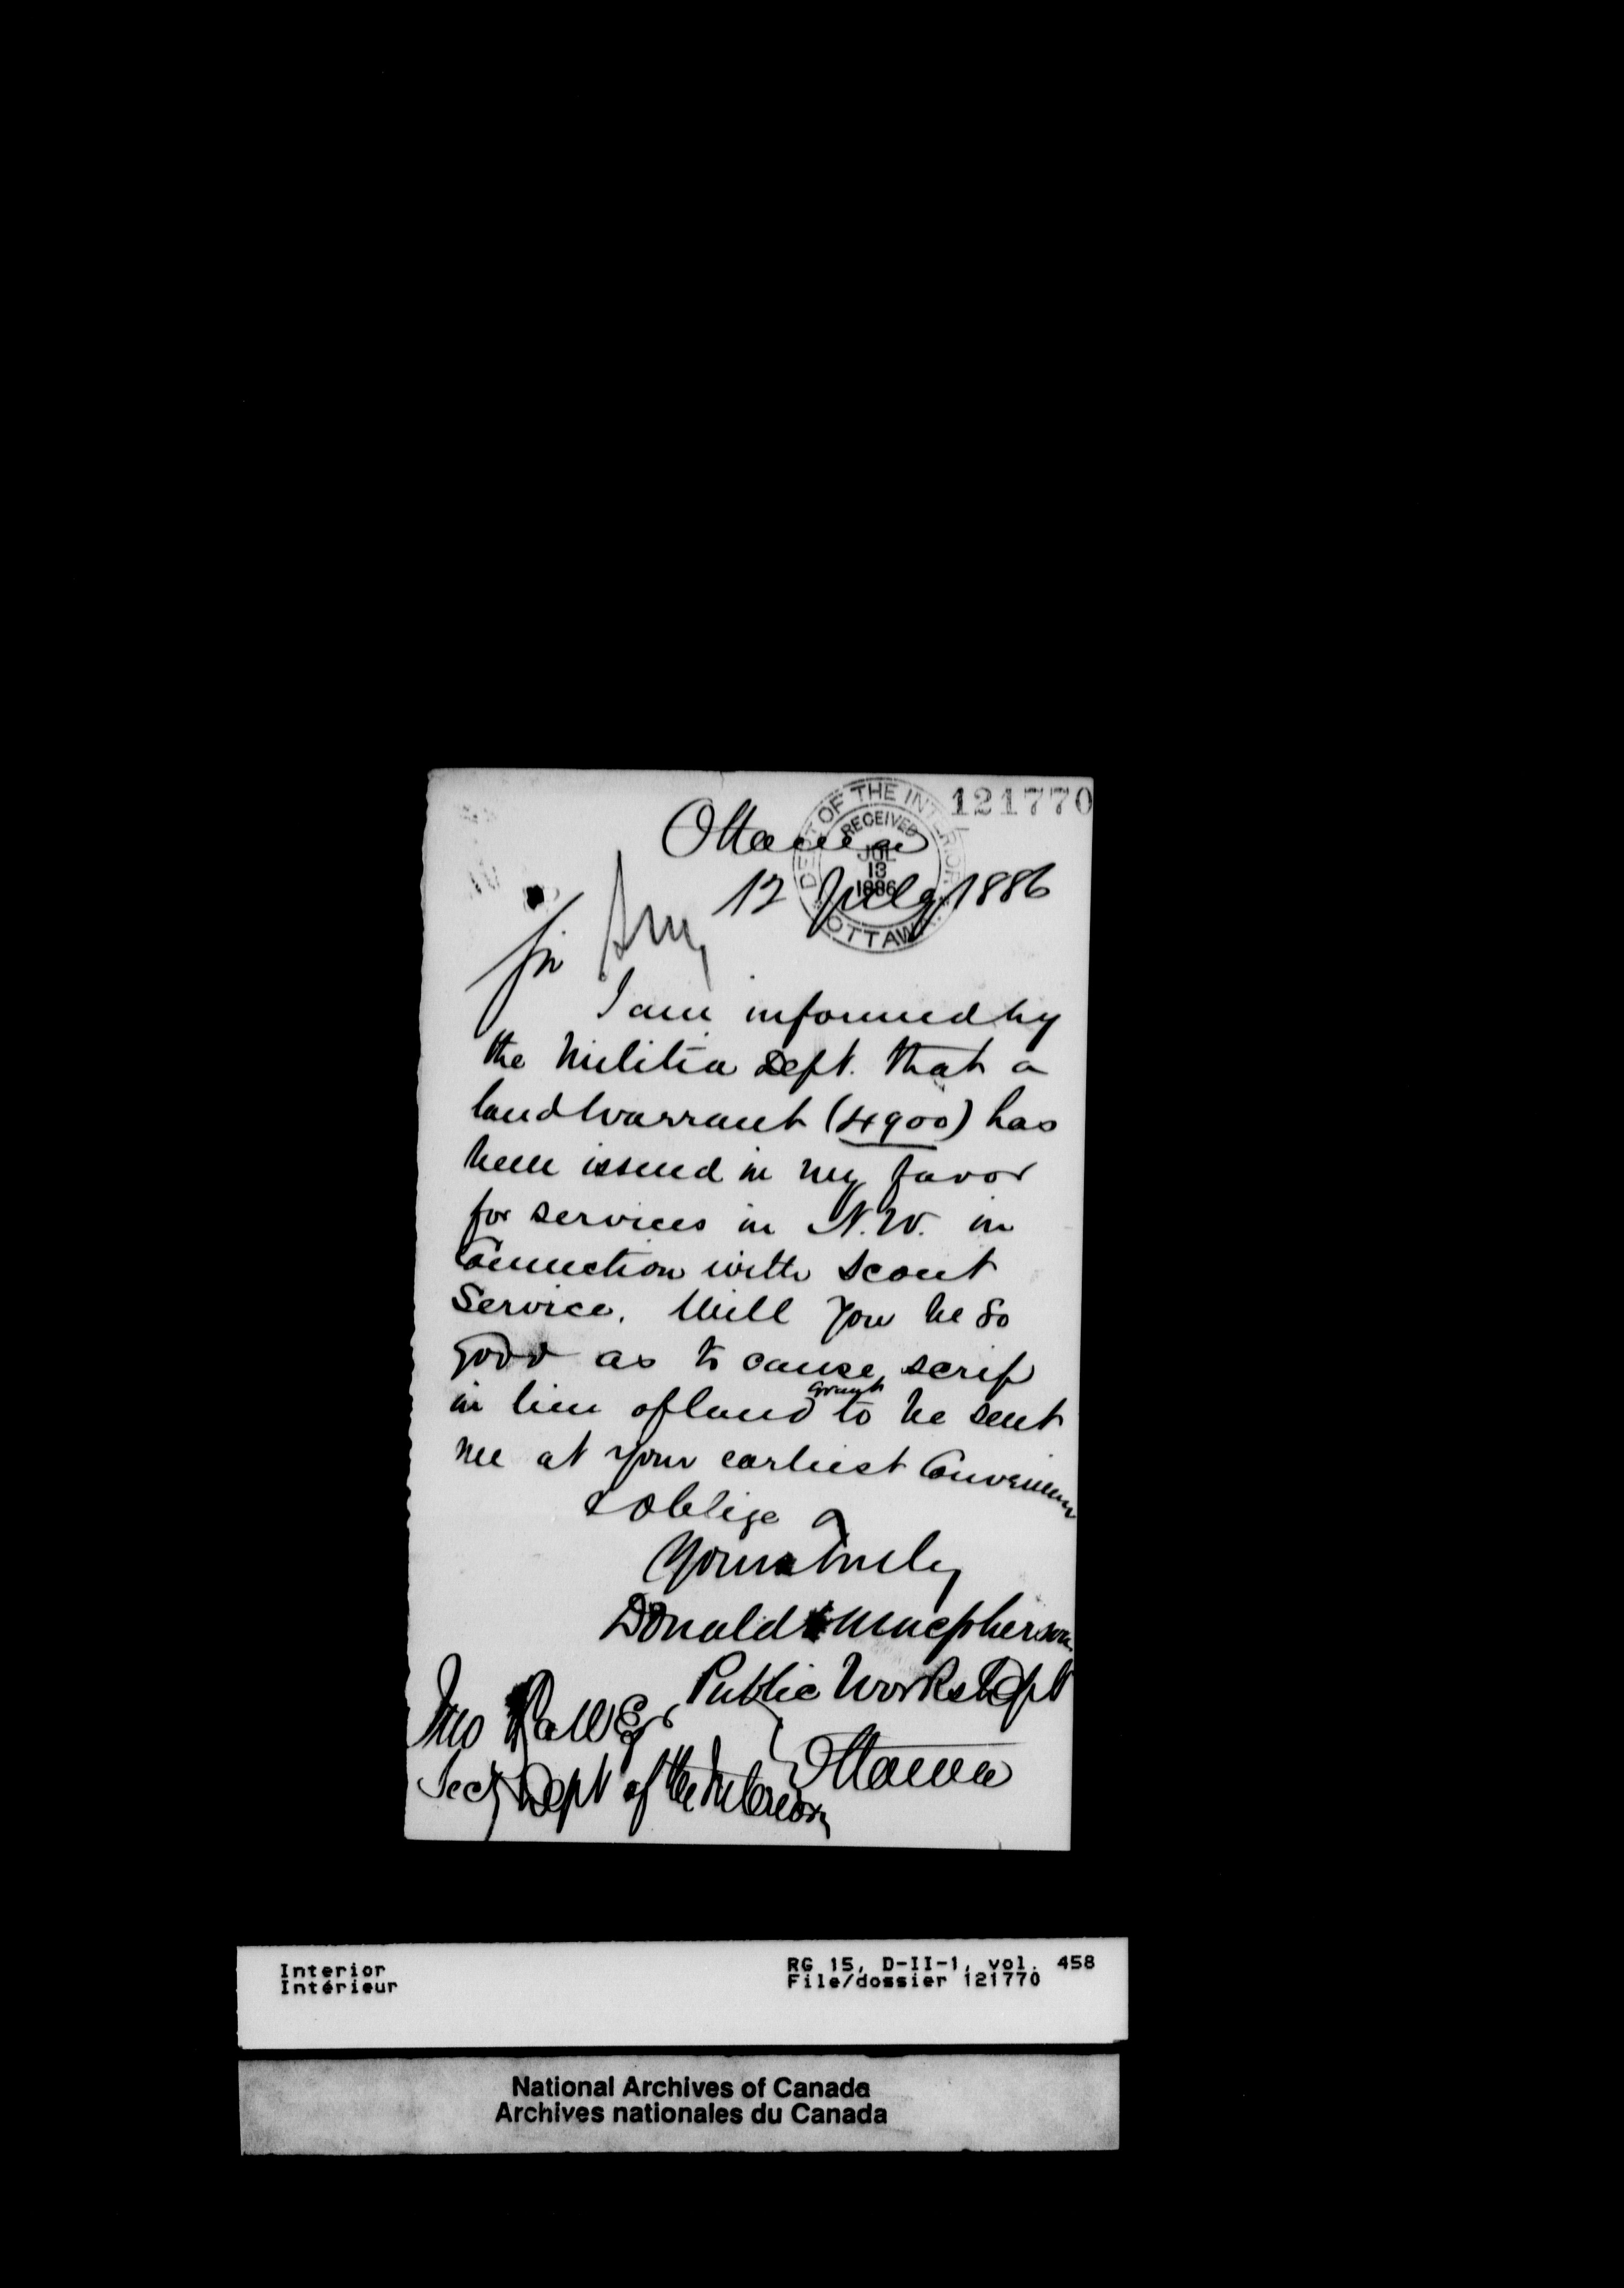 121770
DEPT OF THE INTERIOR
RECEIVED
JUL
13
1886
OTTAWA
Ottawa
12 July 1886
Sir
I am informed by
the Militia Dept. that a
land warrant (4900) has
been issued in my favor
for services in N.W. in
Connection with Scout
Service. Will you be so
good as to cause scrip
in lieu of land grant to be sent
me at your earliest Convenience
& oblige
Yours truly
Donald Macpherson
Public Works Dept
Ottawa
Jno Hall Esq
Secy Dept of the Interior
Interior
Intérieur
RG 15, D-II-1, vol. 458
File/dossier 121770
National Archives of Canada
Archives nationales du Canada